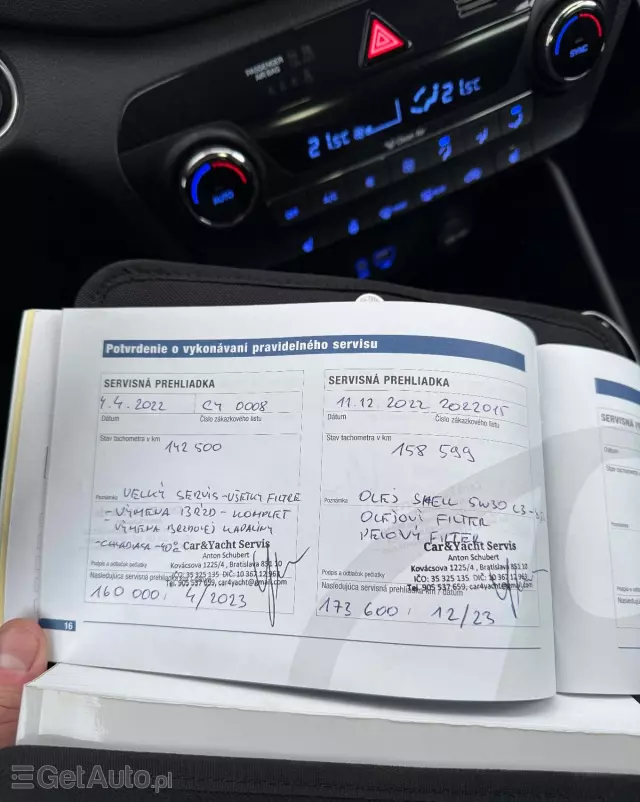 PASSENGER
AIR BAG
SYNC
AUTO
OFF
A/C
Potvrdenie o vykonávaní pravidelného servisu
SERVISNÁ PREHLIADKA
4.4.2022 CY 0008
Dátum Číslo zákazkového listu
Stav tachometra v km
142 500
Poznámka VEĽKÝ SERVIS - VŠETKY FILTRE
- VÝMENA BŔZD - KOMPLET
- VÝMENA BRZDOVEJ KVAPALINY
Car&Yacht Servis
Anton Schubert
Kovácsova 1225/4, Bratislava 851 10
IČO: 35 325 135
Tel. 905 537 659, car4yacht@gmail.com
Podpis a odtlačok pečiatky
Nasledujúca servisná prehliadka
160 000, 4/2023
16
SERVISNÁ PREHLIADKA
11.12.2022 2022015
Dátum Číslo zákazkového listu
Stav tachometra v km
158 599
Poznámka OLEJ SHELL 5W30 C3
OLEJOVÝ FILTER
PEĽOVÝ FILTER
Car&Yacht Servis
Anton Schubert
Kovácsova 1225/4, Bratislava 851 10
IČO: 35 325 135
Tel. 905 537 659, car4yacht@gmail.com
Podpis a odtlačok pečiatky
Nasledujúca servisná prehliadka km / dátum
173 600, 12/23
SERVISNÁ PR
Dátum
GetAuto.pl